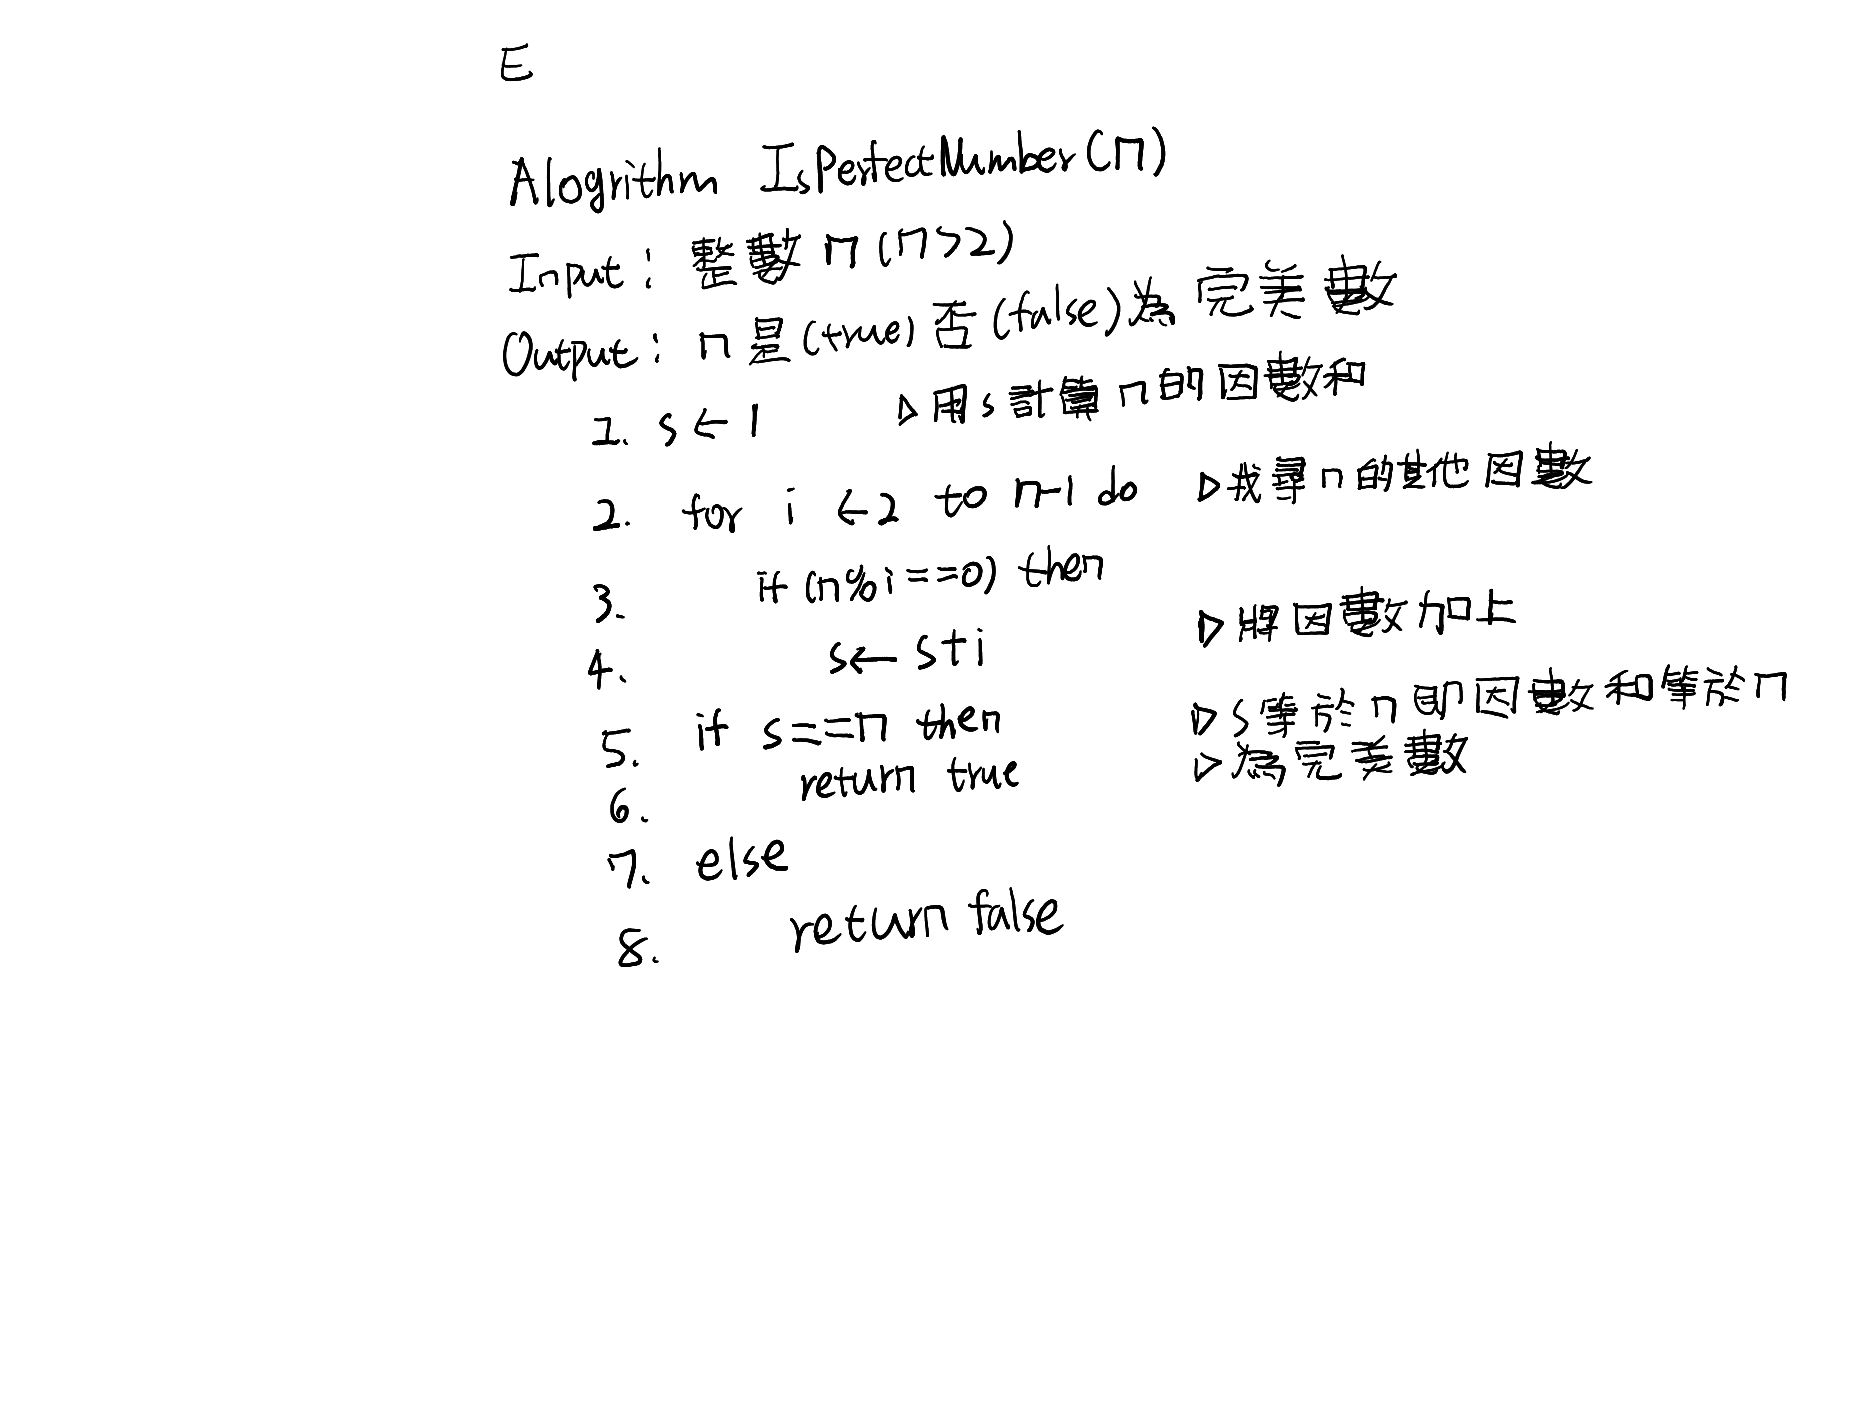 E
Alogrithm IsPerfectNumber(n)
Input: 整數 n (n>2)
Output: n 是(true) 否(false)為完美數
1. s ← 1 ▷用 s 計算 n 的因數和
2. for i ←2 to n-1 do ▷找尋 n 的其他因數
3. if (n%i==0) then
4. s← s+i ▷將因數加上
5. if s==n then ▷s等於 n 即因數和等於n
6. return true ▷為完美數
7. else
8. return false